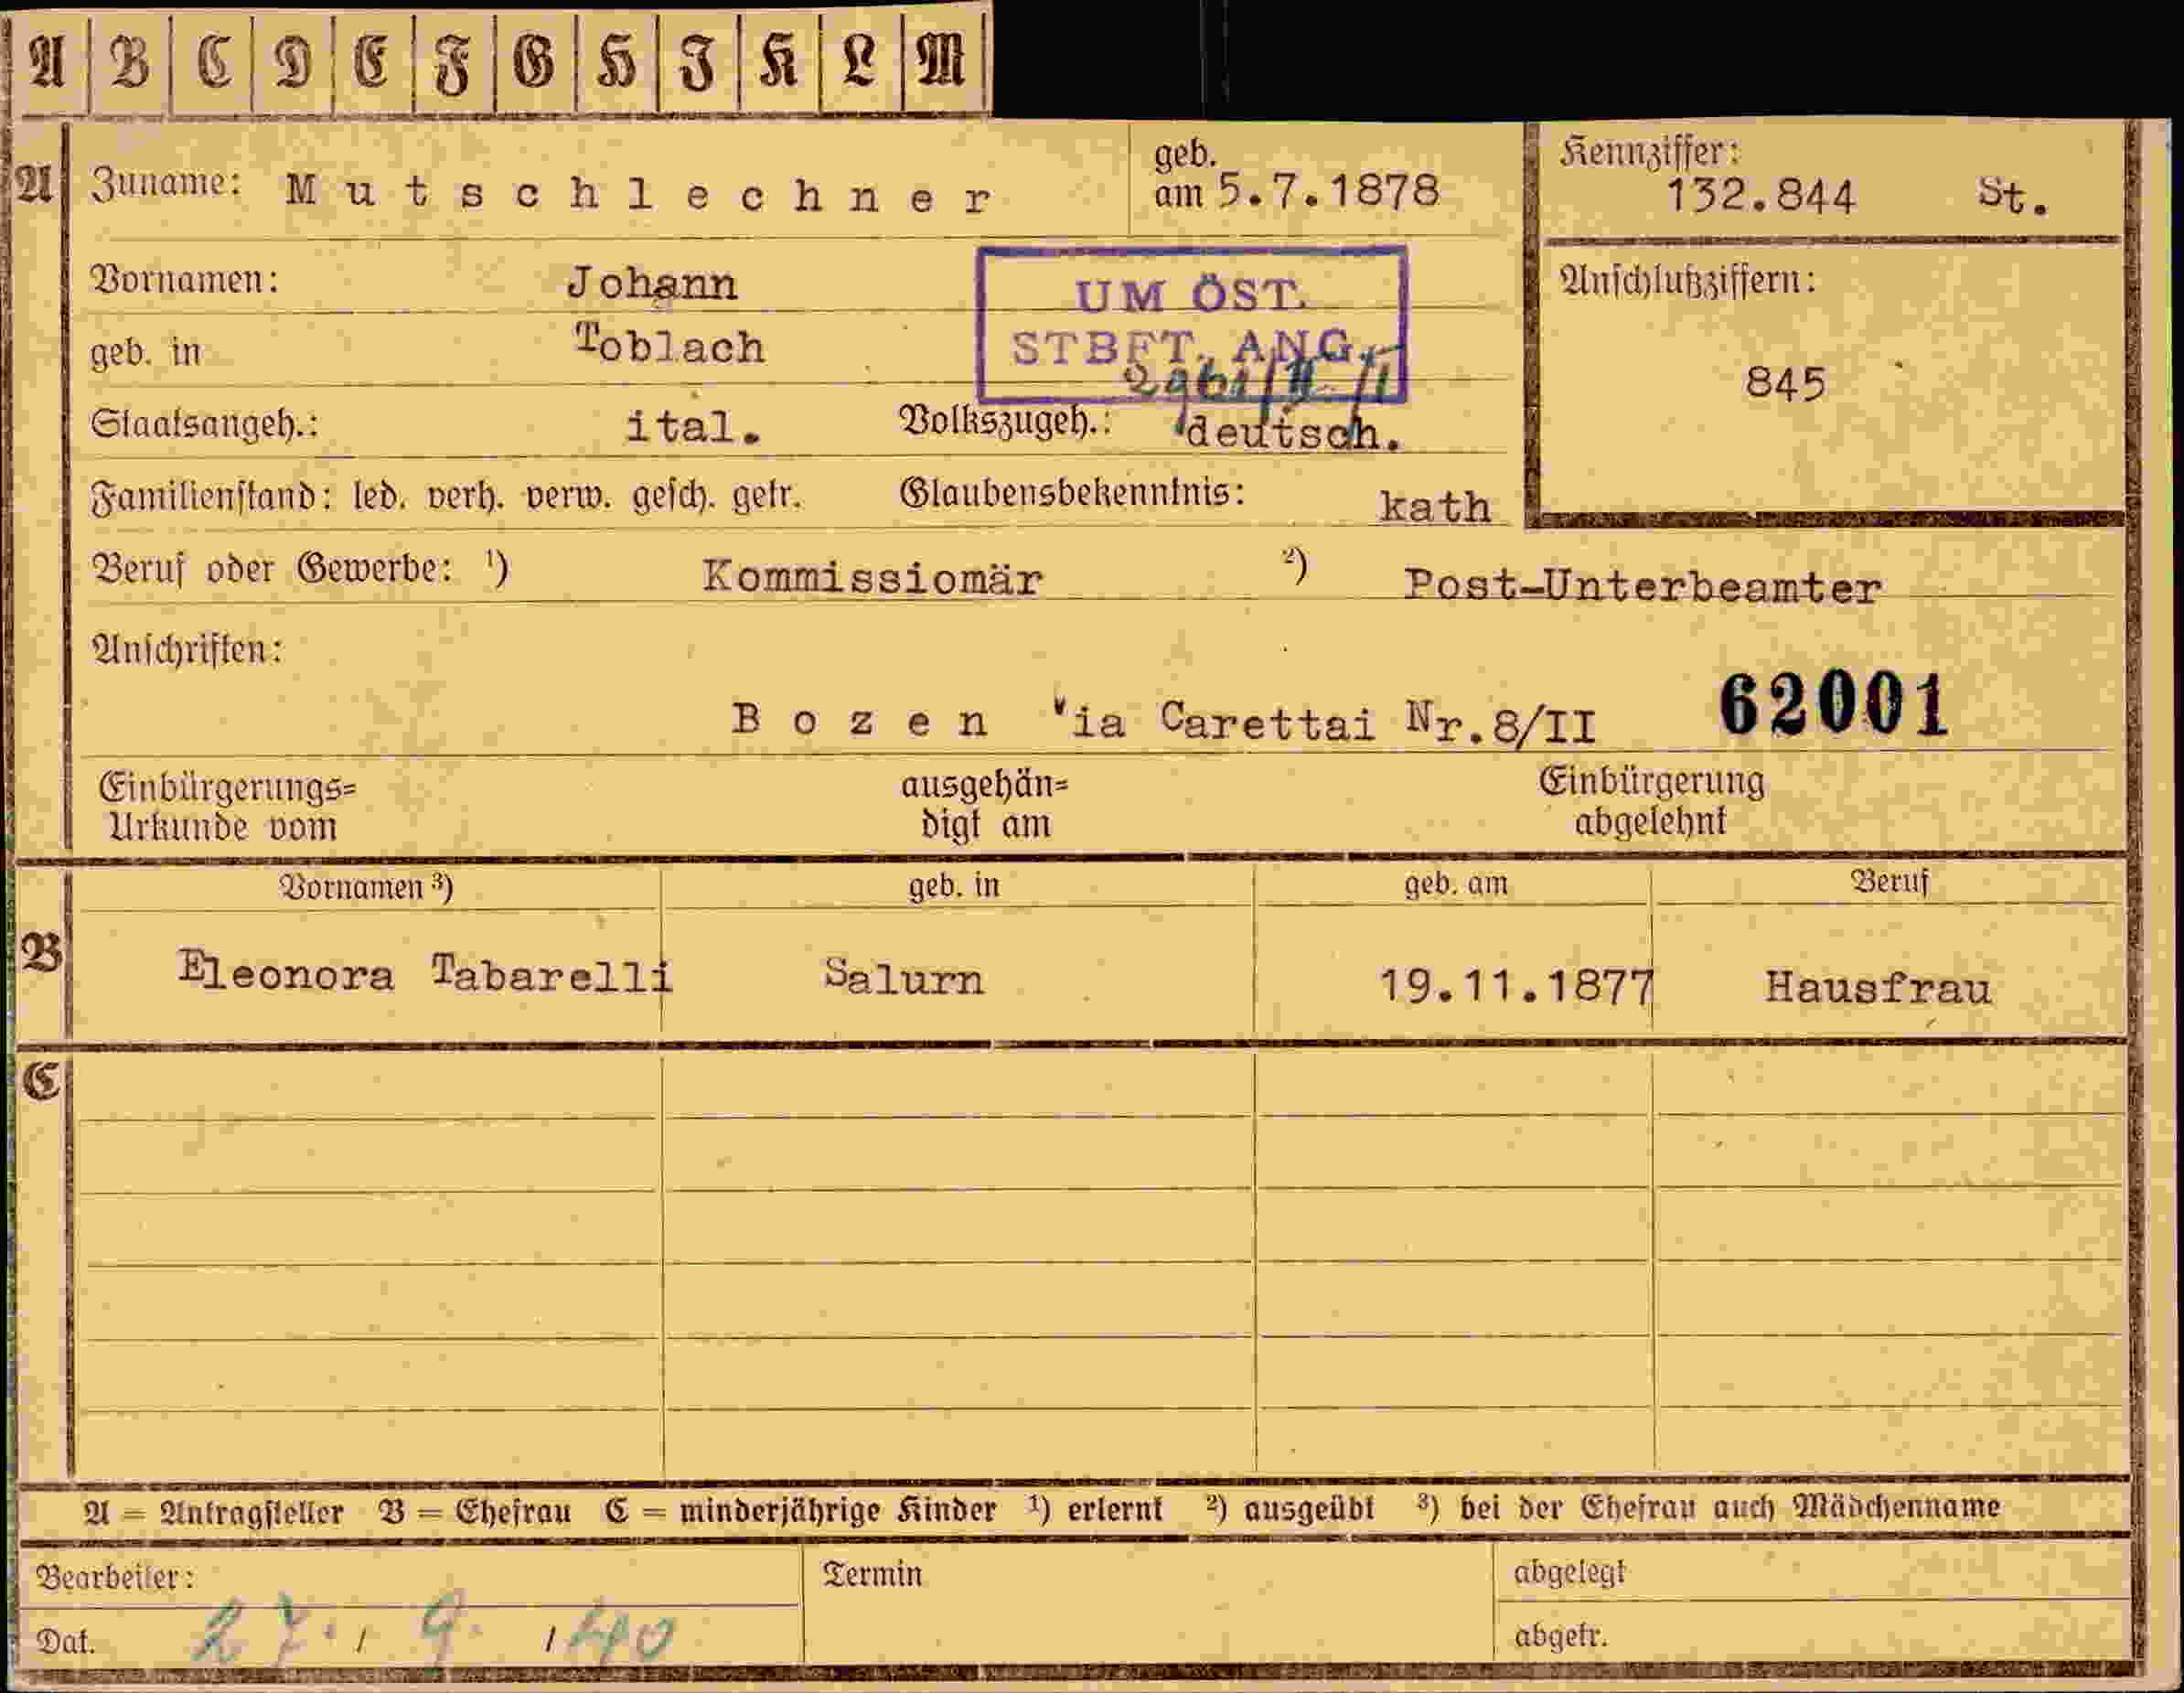 A B C D E F G H I K L M
A Zuname: Mutschlechner geb. am 5.7.1878 Kennziffer: 132.844 St.
Vornamen: Johann
UM ÖST.
STBFT. ANG.
Anschlußziffern: 845
geb. in Toblach
Staatsangeh.: ital. Volkszugeh.: deutsch.
Familienstand: led. verh. verw. gesch. getr. Glaubensbekenntnis: kath
Beruf oder Gewerbe: ¹) Kommissiomär ²) Post-Unterbeamter
Anschriften:
Bozen Via Carettai Nr.8/II 62001
Einbürgerungs=
Urkunde vom
ausgehän=
digt am
Einbürgerung
abgelehnt
Vornamen ³) geb. in geb. am Beruf
B Eleonora Tabarelli Salurn 19.11.1877 Hausfrau
C
A = Antragsteller B = Ehefrau C = minderjährige Kinder ¹) erlernt ²) ausgeübt ³) bei der Ehefrau auch Mädchenname
Bearbeiter: Termin abgelegt
Dat. 27. / 9. / 40 abgetr.